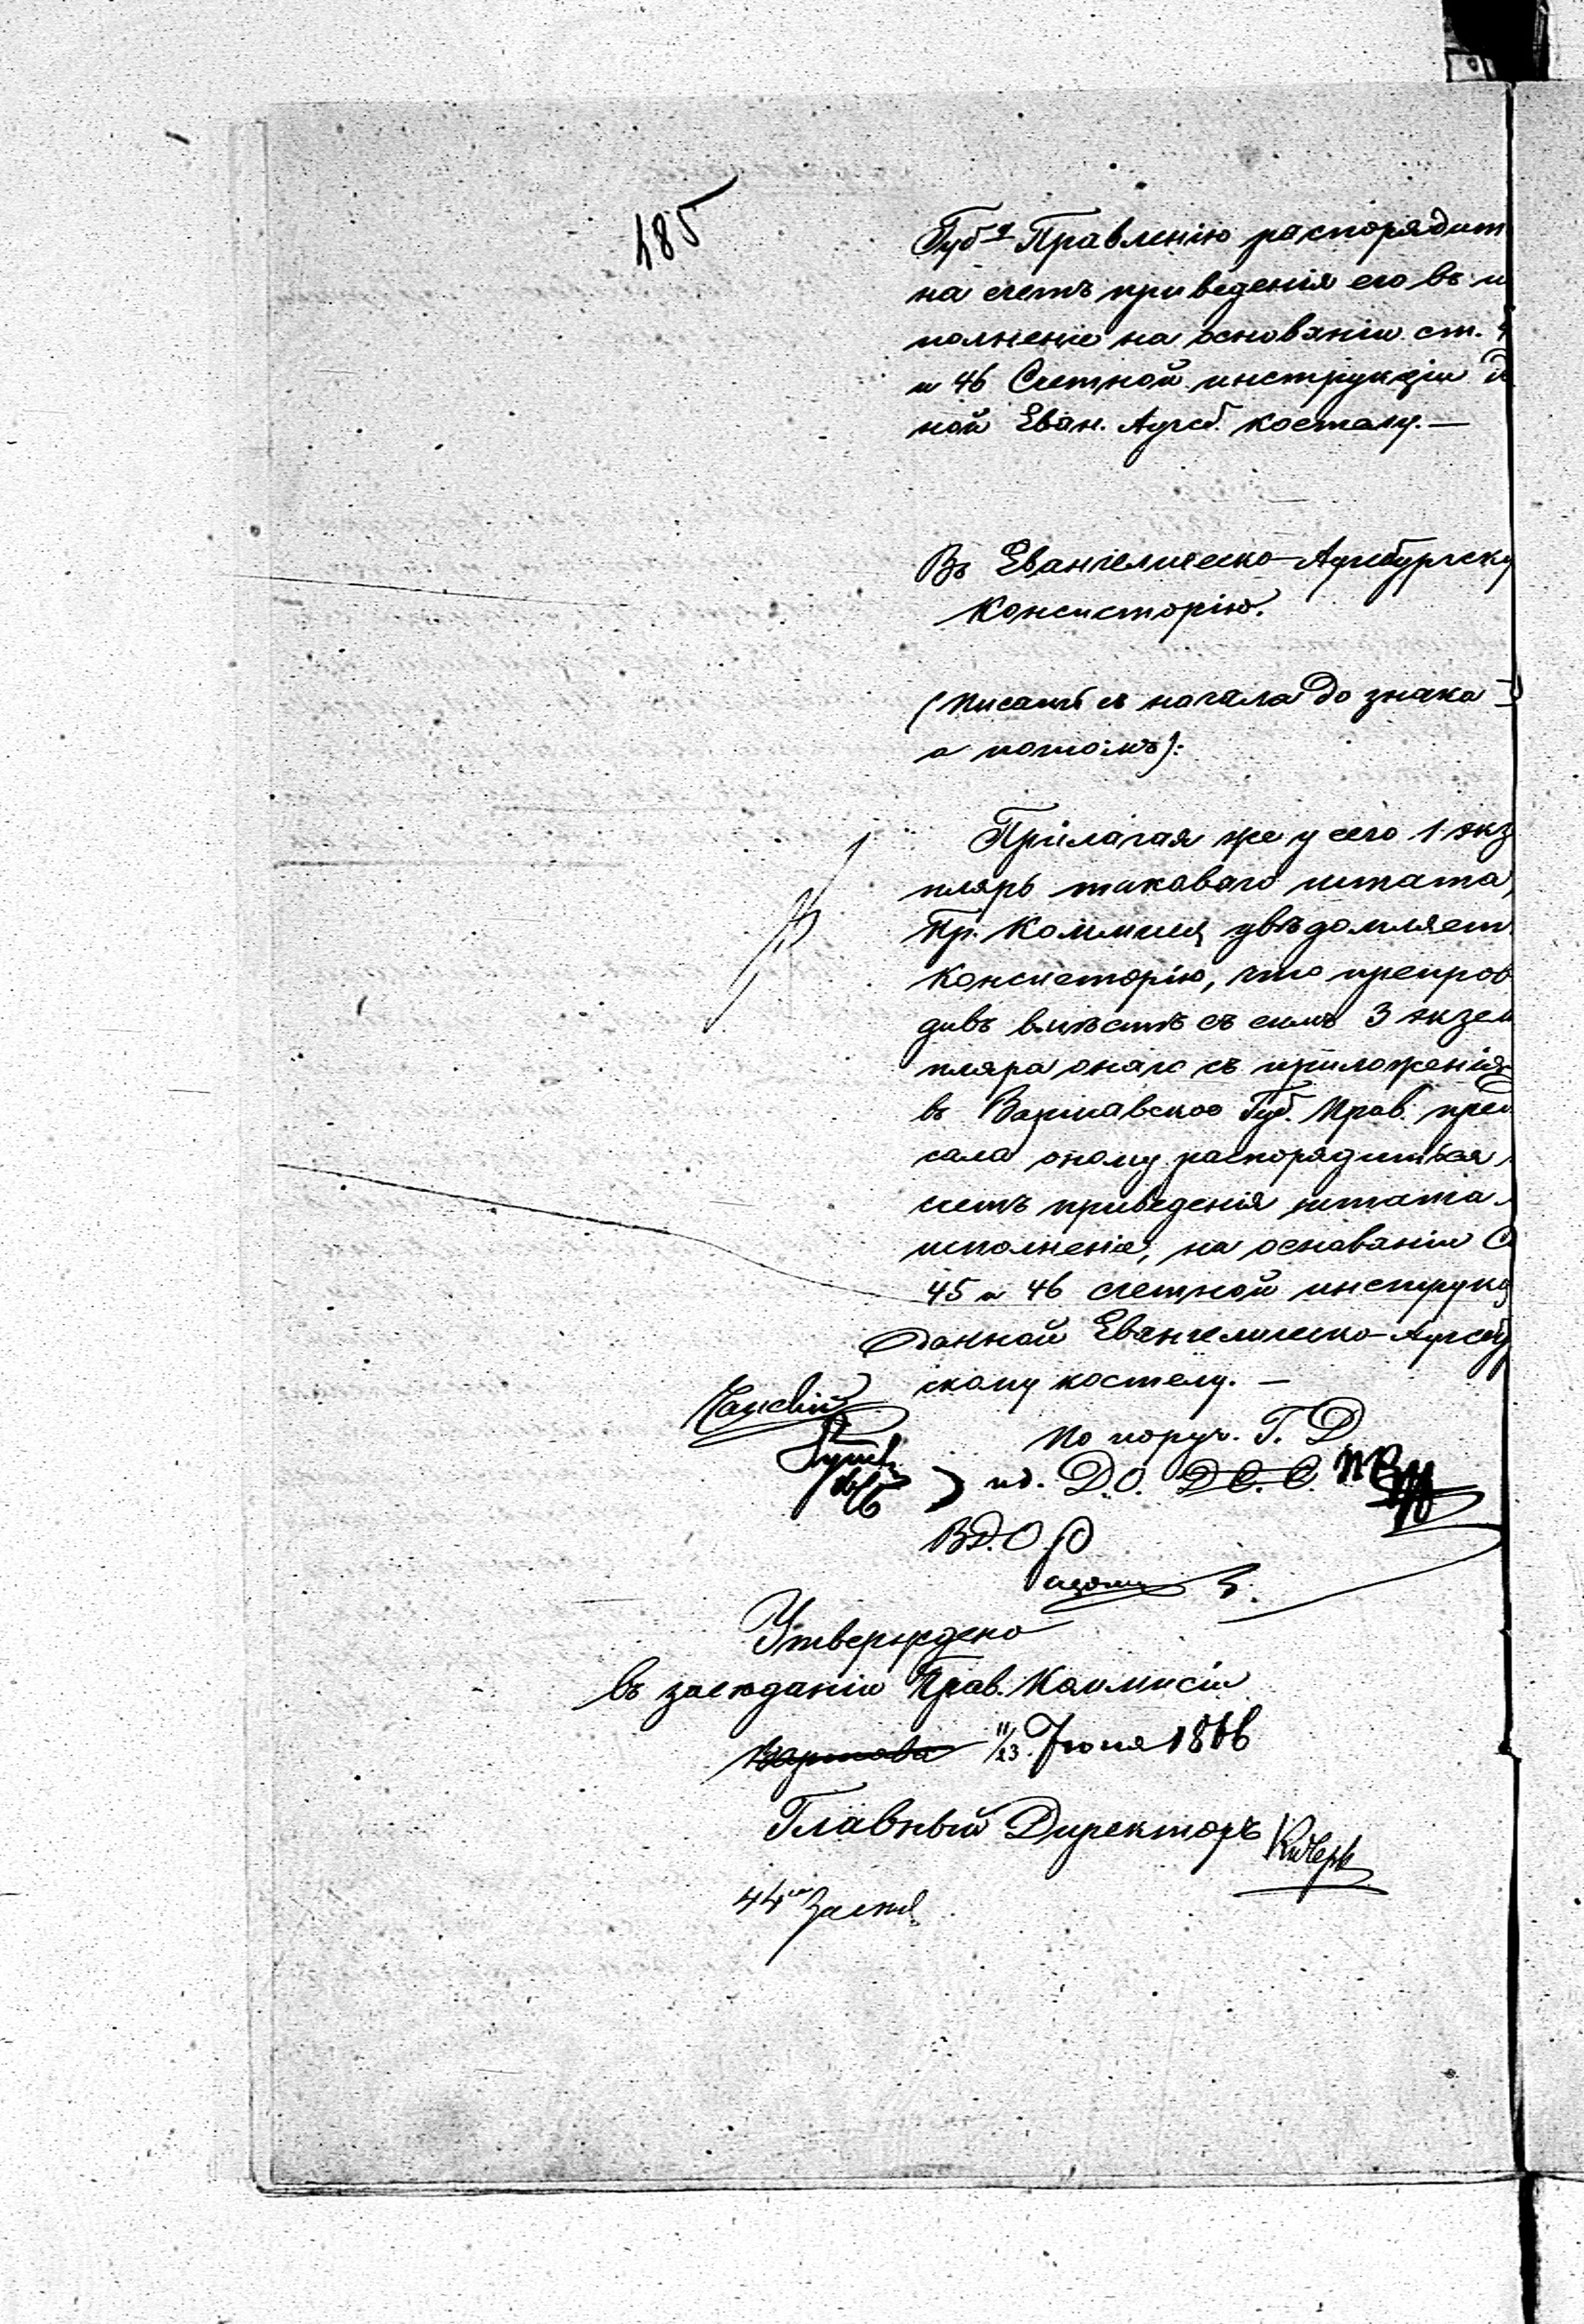 185
Губ. Правленію распорядит
на счетъ приведенія его въ и
полненіе на основаніи ст.
и 46 Счетной инструкціи д
ной Еван. Аугсб. костелу. —
Въ Евангелическо-Аугсбургску
Консисторію.
(писать съ начала до знака
а потомъ):
Прилагая же у сего 1 экз
пляръ таковаго штата,
Пр. Коммисія увѣдомляет
Консисторію, что препров
дивъ вмѣстѣ съ симъ 3 экзем
пляра онаго съ приложенія
въ Варшавское Губ. Прав. пред
сала оному распорядиться
счетъ приведенія штата
исполненіе, на основаніи С
45 и 46 счетной инструкц
данной Евангелическо-Аугсбу
скому костелу. —
По поруч. Г. Д
ид. Д.О. Д.С.С.
В.Д.О.
Утверждено
въ засѣданіи Прав. Коммисіи
Варшава 11/23 Іюня 1866
Главный Директоръ
44